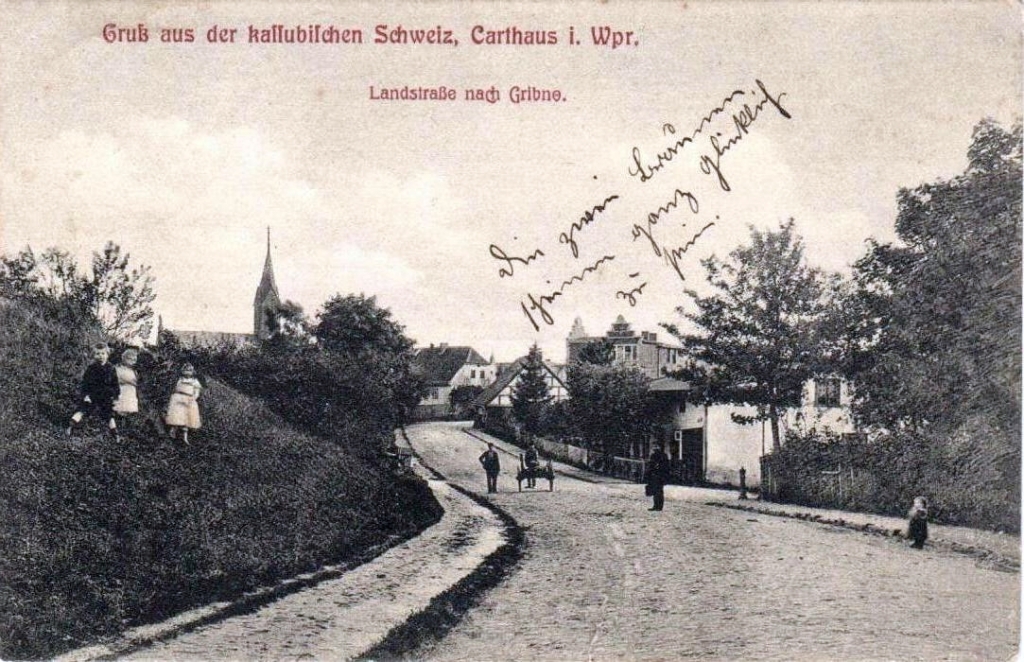 Gruß aus der kaſſubiſchen Schweiz, Carthaus i. Wpr.
Landstraße nach Gribno.
Die zwei Braunen
scheinen ganz glücklich
zu sein.